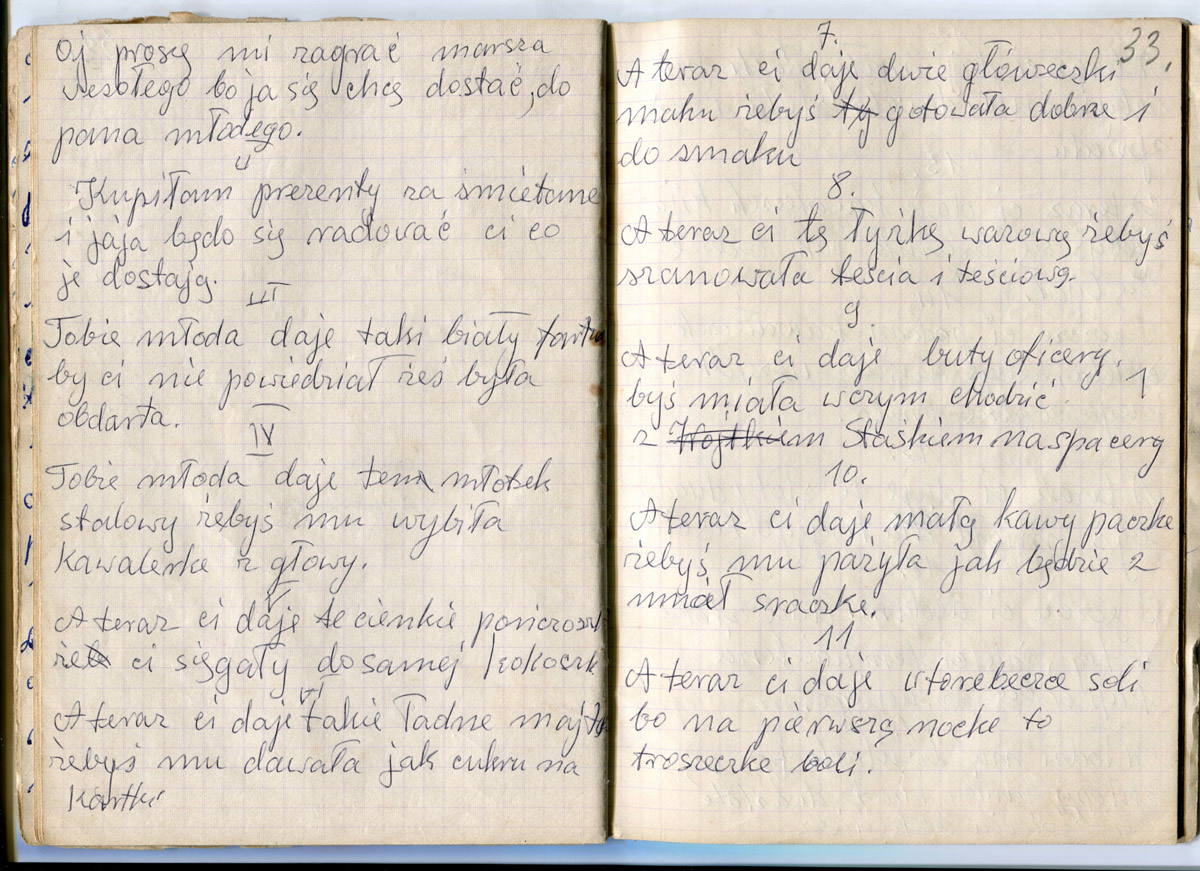 Oj proszę mi zagrać marsza
wesołego bo ja się chcę dostać, do
pana młodego.
II
Kupiłam prezenty za śmietane
i jaja będo się radować ci co
je dostają.
III
Tobie młoda daje taki biały fartu
by ci nie powiedział żeś była
obdarta.
IV
Tobie młoda daje ten młotek
stalowy żębyś mu wybiła
Kawalerke z głowy.
V
A teraz ci daje te cienkie pończosz
żeb ci sięgały do samej kokoszki
VI
A teraz ci daje takie ładne majt
żebyś mu dawała jak cukru na
Kartki
33.
7.
A teraz ci daje dwie główeczki
maku żebyś ty gotowała dobrze i
do smaku
8.
A teraz ci tę łyżkę wazową żebyś
szanowała teścia i teściową.
9.
A teraz ci daje buty oficery.
byś miała wczym chodzić 1
z Wojtkiem Staśkiem na spacery
10.
A teraz ci daje małą kawy paczke
żebyś mu pażyła jak będzie 2
miał sraczke.
11
A teraz ci daje wtorebeczce soli
bo na pierwszą nocke to
troszeczke boli.